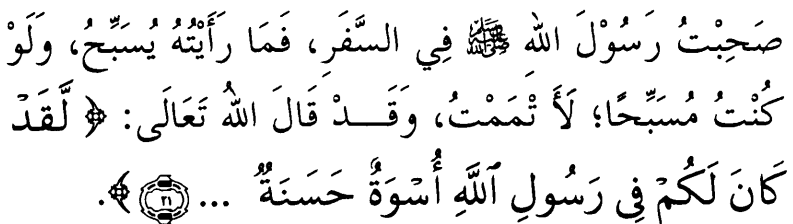 صَحِبْتُ رَسُوْلَ اللهِ ﷺ فِي السَّفَرِ، فَمَا رَأَيْتُهُ يُسَبِّحُ، وَلَوْ
كُنْتُ مُسَبِّحًا؛ لَأَ تْمَمْتُ، وَقَـــدْ قَالَ اللهُ تَعَالَى: ﴿ لَّقَدْ
كَانَ لَكُمْ فِى رَسُولِ ٱللَّهِ أُسْوَةٌ حَسَنَةٌ ... ٢١ ﴾.